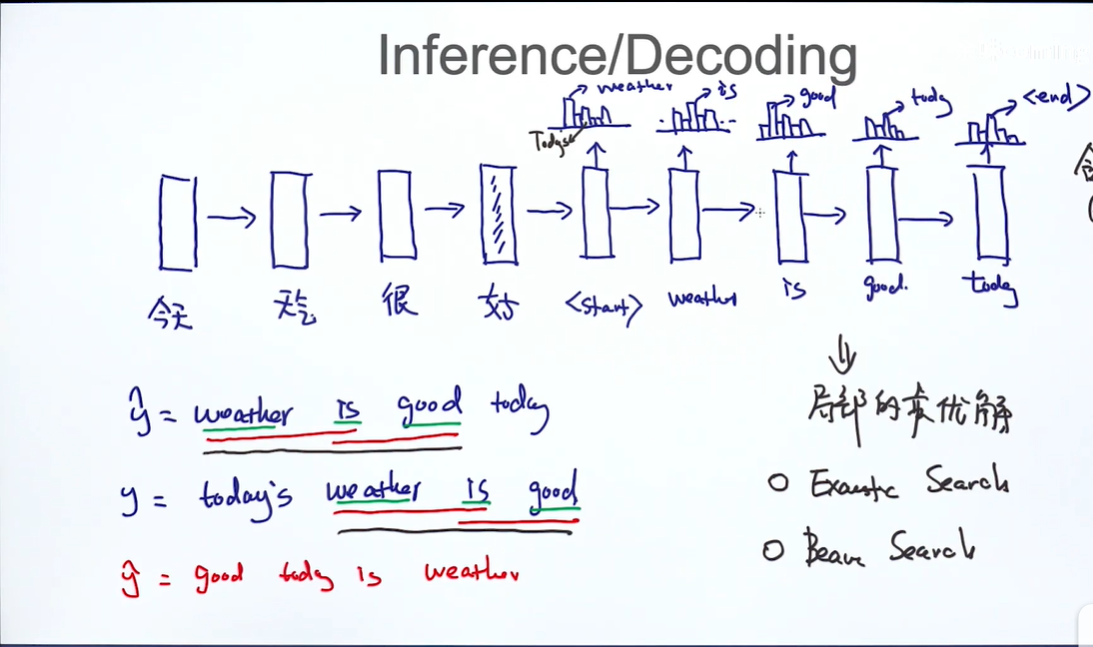 Inference/Decoding
weather
is
good
tody
<end>
Today's
今天
天气
很
好
<start>
weather
is
good.
today
ŷ = weather is good today
y = today's weather is good
ŷ = good today is weather
局部的最优解
Exaustc Search
Beam Search